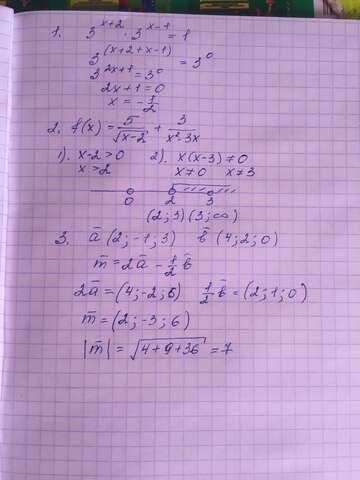 1. 3^(x+2) · 3^(x-1) = 1
3^((x+2+x-1)) = 3^0
3^(2x+1) = 3^0
2x+1=0
x = -1/2
2. f(x) = 5/√(x-2) + 3/(x²-3x)
1). x-2>0 2). x(x-3)≠0
x>2 x≠0 x≠3
0 2 3
(2;3)(3;∞)
3. a̅ (2;-1;3) b̅ (4;2;0)
m̅ = 2a̅ - 1/2 b̅
2a̅ = (4;-2;6) 1/2 b̅ = (2;1;0)
m̅ = (2;-3;6)
|m̅| = √(4+9+36) = 7